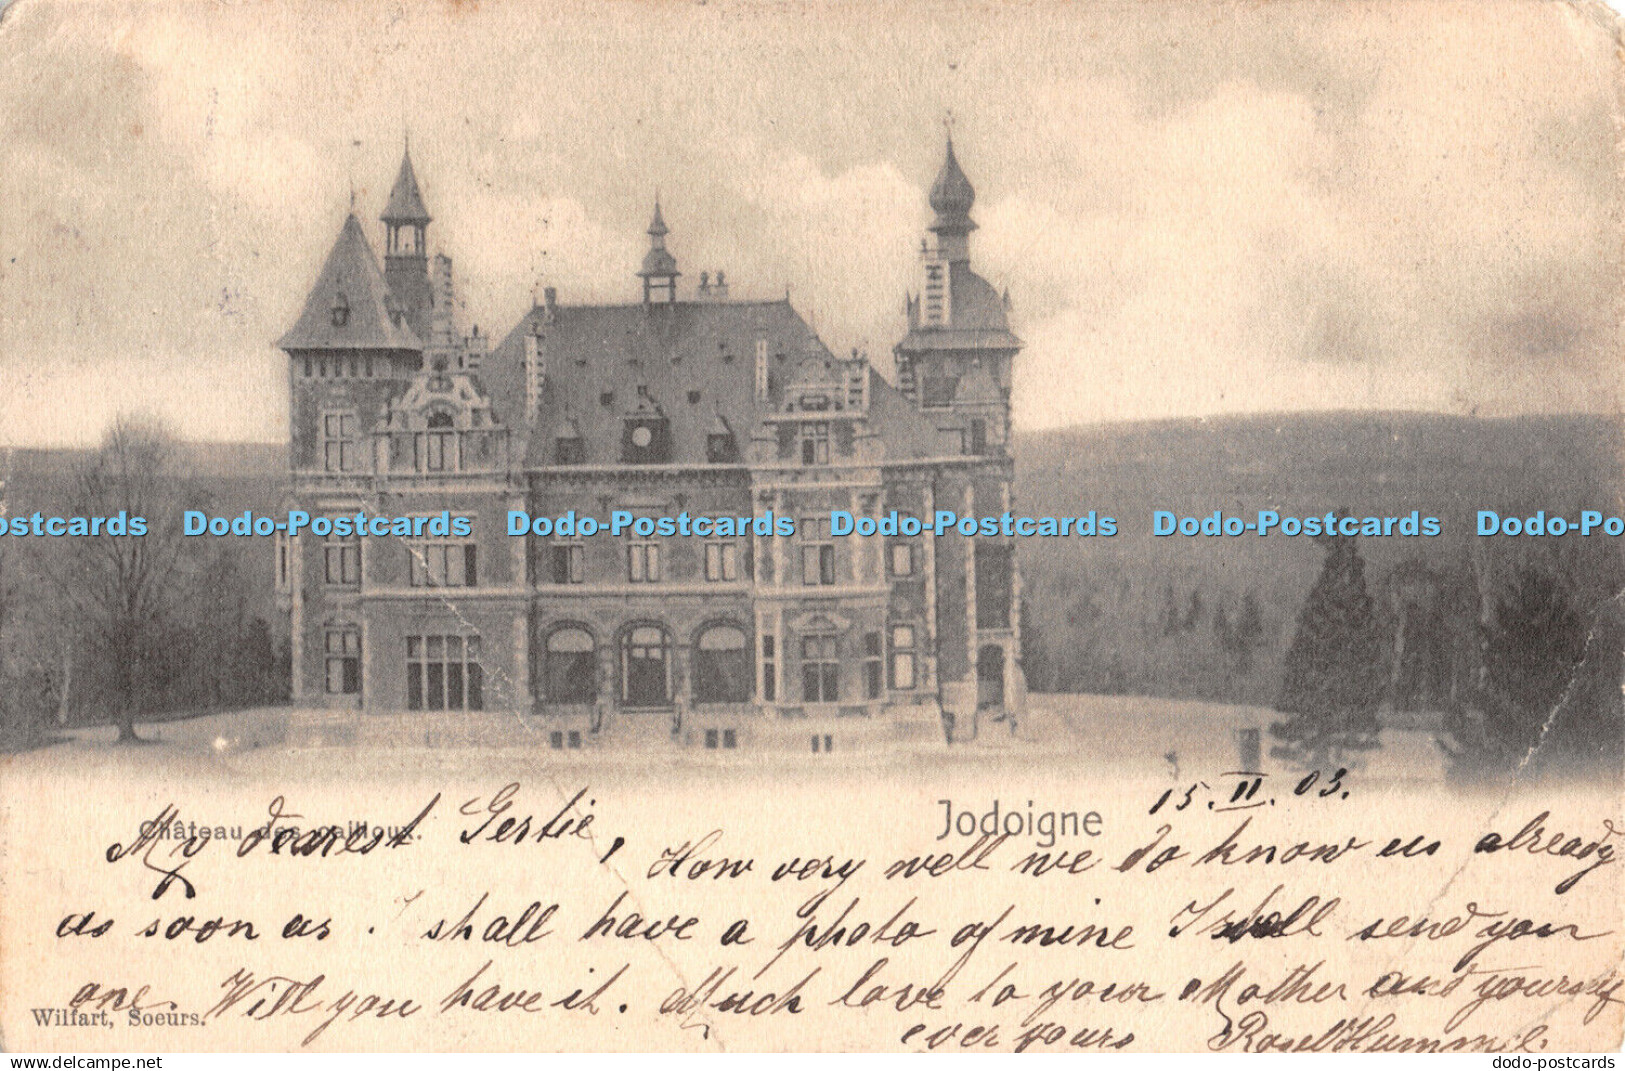 ostcards Dodo-Postcards Dodo-Postcards Dodo-Postcards Dodo-Postcards Dodo-Po
Jodoigne 15. II. 03.
Château des cailloux.
My dearest Gertie,
How very well we do know us already
as soon as I shall have a photo of mine I shall send you
one. Will you have it. Much love to your Mother and yourself
Wilfart, Soeurs.
ever yours Hummel.
dodo-postcards